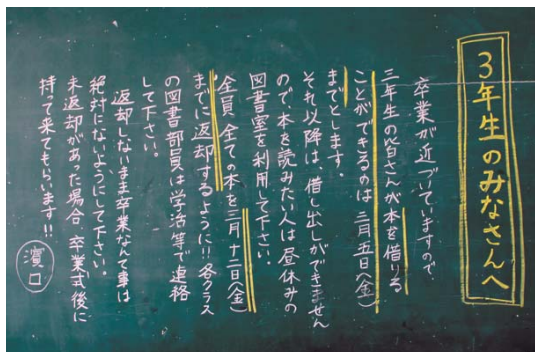 3年生のみなさんへ
卒業が近づいていますので
三年生の皆さんが本を借りる
ことができるのは三月五日(金)
までとします。
それ以降は、借し出しができません
ので、本を読みたい人は昼休みの
図書室を利用して下さい。
全員、全ての本を三月十二日(金)
までに返却するように!!各クラス
の図書部員は学活等で連絡
して下さい。
返却しないまま卒業なんて事は
絶対にないようにして下さい。
未返却があった場合、卒業式後に
持って来てもらいます!!
濱口